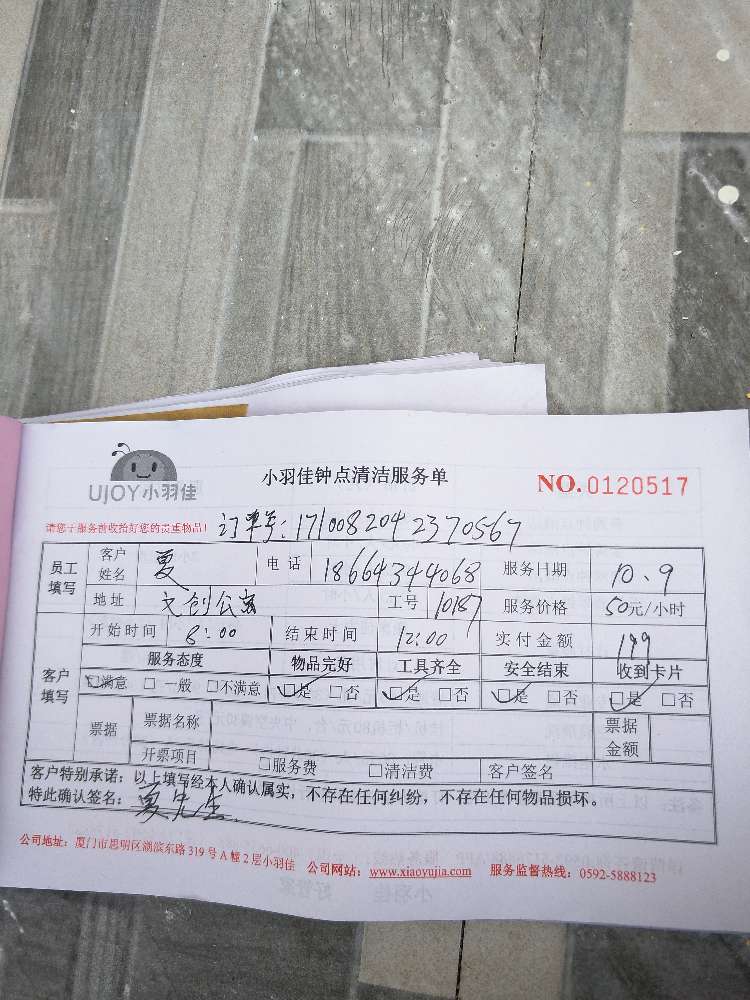 UJOY小羽佳
小羽佳钟点清洁服务单
NO.0120517
请您于服务前收拾好您的贵重物品!
订单号:1710082042370567
员工填写 客户姓名 夏 电话 18664344068 服务日期 10.9
地址 文创公寓 工号 10187 服务价格 50元/小时
客户填写 开始时间 8:00 结束时间 12:00 实付金额 199
服务态度 物品完好 工具齐全 安全结束 收到卡片
☑满意 □一般 □不满意 ☑是 □否 ☑是 □否 ☑是 □否 ☑是 □否
票据 票据名称 票据金额
开票项目 □服务费 □清洁费 客户签名
客户特别承诺:以上填写经本人确认属实,不存在任何纠纷,不存在任何物品损坏。
特此确认签名: 夏先生
公司地址:厦门市思明区湖滨东路319号A幢2层小羽佳 公司网站:www.xiaoyujia.com 服务监督热线:0592-5888123